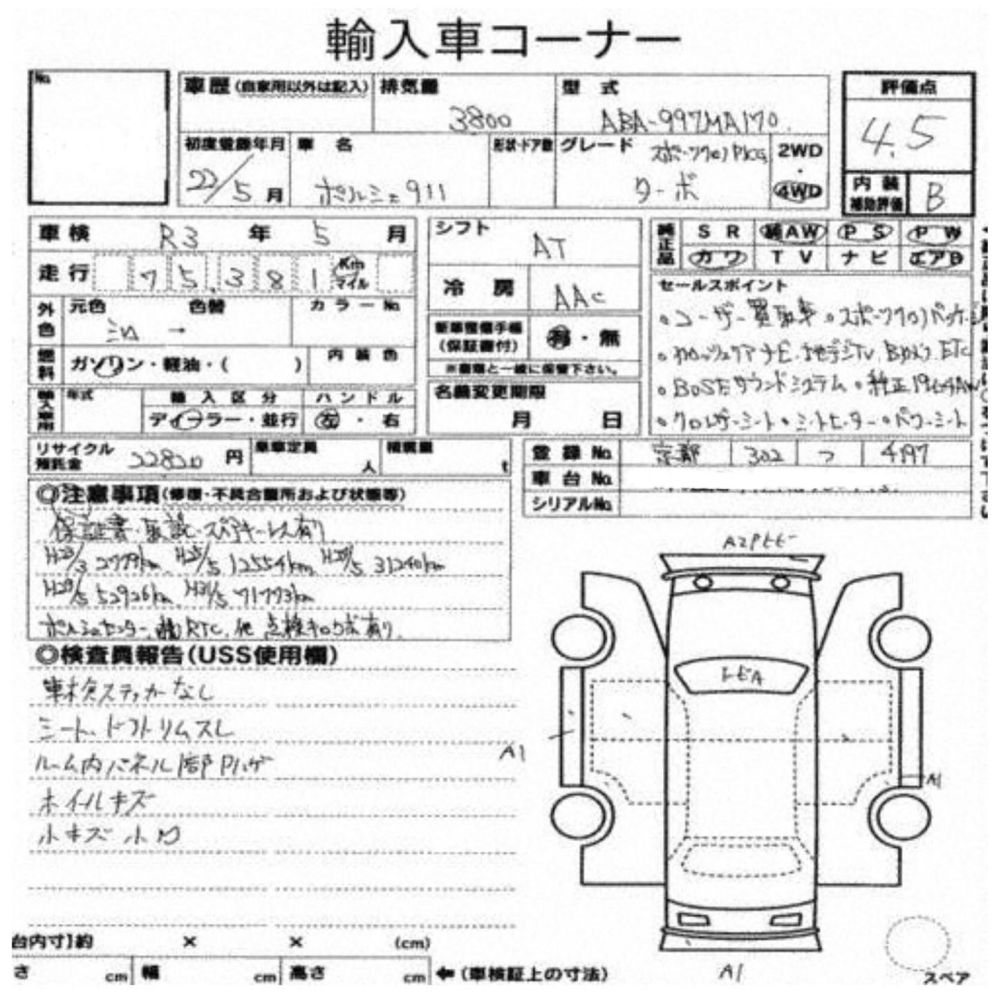 輸入車コーナー
No.
車歴 (自家用以外は記入) 排気量 型式 評価点
3800 ABA-997MA170 4.5
初度登録年月 車名 形状・ドア数 グレード スポーツクロノPKG 2WD
22/5月 ポルシェ911 ターボ 4WD 内装補助評価 B
車検 R3年 5月 シフト AT 純正品 SR 純AW PS PW
走行 75,381 Km マイル カワ TV ナビ エアB
冷房 AAC セールスポイント
外色 元色 色替 カラーNo.
シロ →
・ユーザー買取車 ・スポーツクロノパッケージ
新車整備手帳 (保証書付) 有・無
燃料 ガソリン・軽油・( ) 内装色
※書類と一緒に保管下さい。
地デジTV, Bカメ, ETC
輸入車用 年式 輸入区分 ハンドル 名義変更期限
・BOSEサウンドシステム ・純正19インチAW
ディーラー・並行 左・右 月 日
シートヒーター ・パワーシート
リサイクル預託金 22820円 乗車定員 人 積載量 t 登録No. 京都 302 つ 4197
車台No.
シリアルNo.
◎注意事項(修復・不具合箇所および状態等)
保証書・取説・スペアキーレス有り
H23/3 2779km, H25/5 12554km, H27/5 31240km
H29/5 52926km, H31/5 71773km
ポルシェセンター, RTC, 他 点検キロク有り.
◎検査員報告(USS使用欄)
車検ステッカーなし
シート、ドアトリムスレ
ルーム内パネル1部Pハゲ
ホイールキズ
小キズ小凹
A1
A1
A1
台内寸]約 × × (cm)
さ cm 幅 cm 高さ cm ←(車検証上の寸法)
スペア